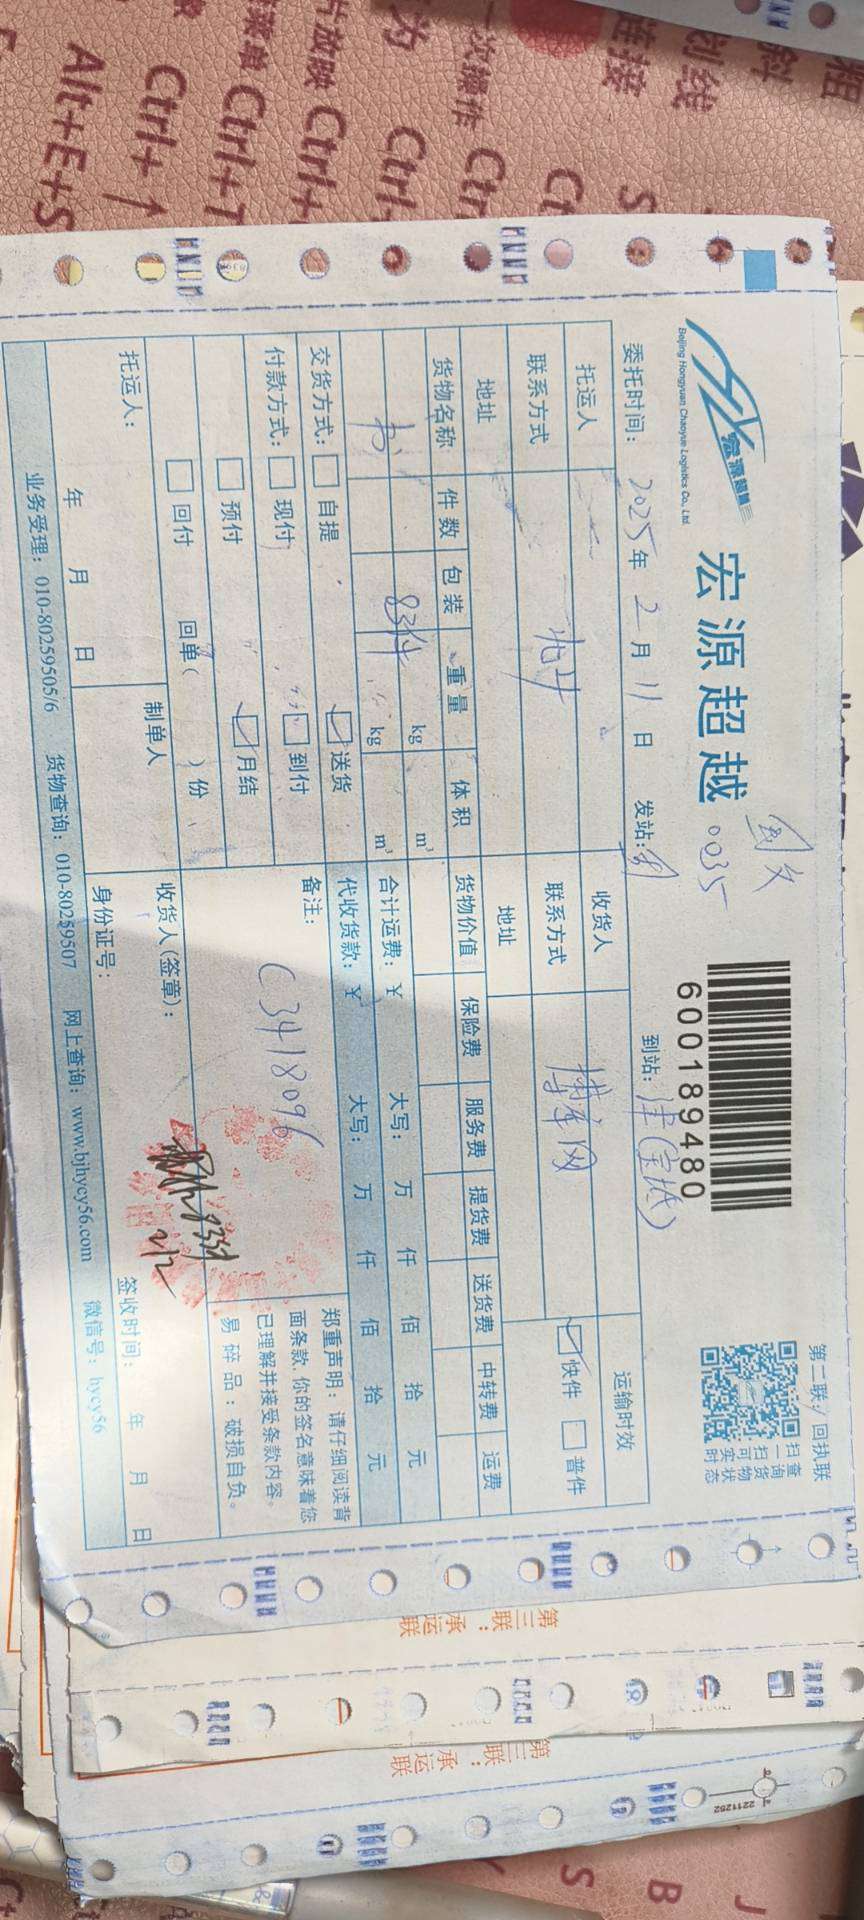 宏源超越
Beijing Hongyuan Chaoyue Logistics Co., Ltd.
宏源超越 0035
600189480
第二联：回执联
扫一扫可实时
查询货物状态
委托时间： 2025年 2月 11日 发站： 到站：津(宝坻)
托运人 收货人 运输时效
联系方式 北斗 联系方式 博库网 快件 普件
地址 地址
货物名称 件数 包装 重量 体积 货物价值 保险费 服务费 提货费 送货费 中转费 运费
kg m³
书 83件 kg m³ 合计运费：¥ 大写： 万 仟 佰 拾 元
交货方式： 自提 送货 代收货款：¥ 大写： 万 仟 佰 拾 元
付款方式： 现付 到付 备注：
预付 月结
回付 回单( )份
C3418096
郑重声明：请仔细阅读背
面条款，你的签名意味着您
已理解并接受条款内容。
易碎品：破损自负。
托运人： 制单人 收货人(签章)：
年 月 日 身份证号： 签收时间： 年 月 日
业务受理：010-80259505/6 货物查询：010-80259507 网上查询：www.bjhycy56.com 微信号：hycy56
第三联：承运联
第三联：承运联
Alt+E+S
Ctrl+↑
Ctrl+T
片放映 Ctrl+
一次操作
连接
划线
S
B
J